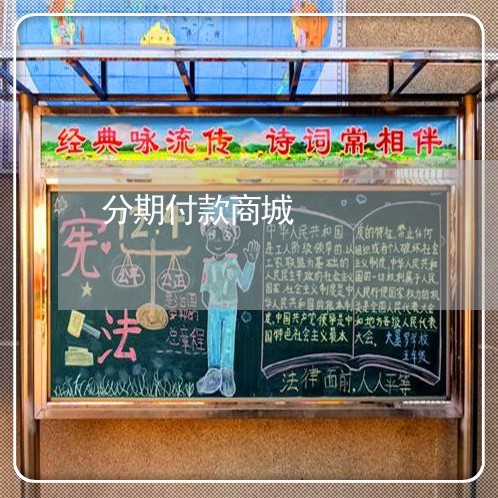 经典咏流传 诗词常相伴
分期付款商城
宪
法
公平
公正
总章程
中华人民共和国
是工人阶级领导的,以
工农联盟为基础的
人民民主专政的社会主义
国家,社会主义制度是中
华人民共和国的根本制
度,中国共产党领导是中
国特色社会主义最本
质的特征,禁止任何
组织或者个人破坏社会
主义制度,中华人民共和
国的一切权利属于人民,
人民行使国家权力的机
关是全国人民代表大会
和地方各级人民代表
大会.
五年级
法律面前,人人平等